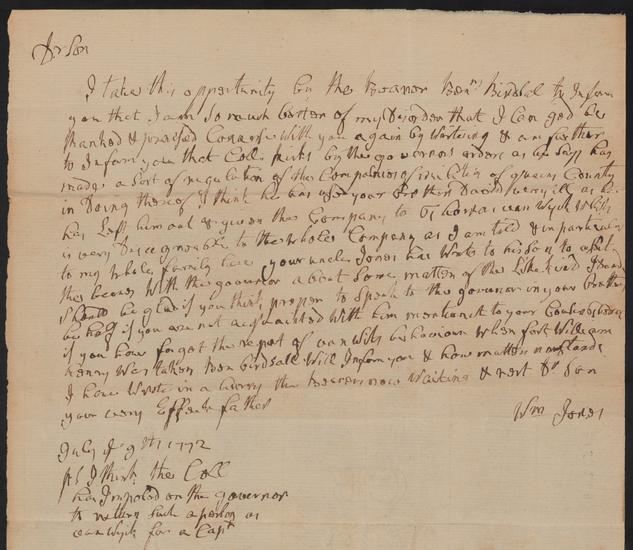 Dr Son
I take this opportunity by the Bearer Benn Birdsal to Inform
you that I am So much better of my disorder that I Can god be
thanked & praesed Converse With you again by Writeing & am further
to Inform you that Coll hicks by the governors orders as he Says has
made a Sort of regulation of the Companies of of queens County
in Doing thereof I think he has used your Brother David very ill as he
has Left him out & given the Company to Thomas van Wyck Which
is very Disagreeable to the Whole Company as I am told & in particular
to my Whole family here your uncle Jones has Wrote to his Son to
the with the governor about Some matter of the Like kind I
Should be glad if you think proper to Speak to the govenor in your Brothers
behalf if you are not acquainted With him
if you have forgot the report of van Wyks behaviour When fort William
henry Was taken Ben birdsall Will Inform you & how matters now Stands
I have Wrote in a hurry the Bearer now Waiting & rest Dr Son
your very Affect father
Wm Jones
July ye 9th 1772
PS I think the Coll
has Imposed on the governor
to return Such a person as
van Wyck for a Capt